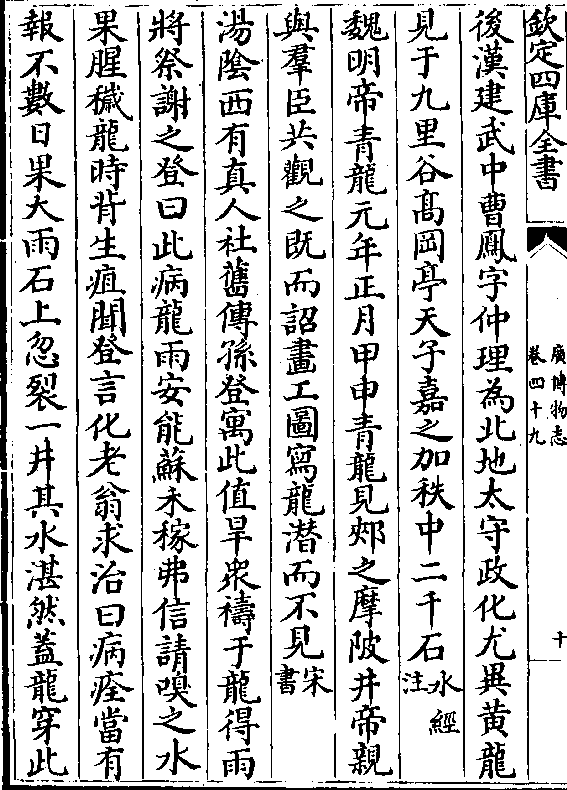 欽定四庫全書
廣博物志
卷四十九
十
後漢建武中曹鳳字仲理為北地太守政化尤異黃龍
見于九里谷高岡亭天子嘉之加秩中二千石水經注
魏明帝青龍元年正月甲申青龍見郟之摩陂井帝親
與羣臣共觀之既而詔畫工圖寫龍潛而不見宋書
湯陰西有真人社舊傳孫登寓此值旱衆禱于龍得雨
將祭謝之登曰此病龍雨安能蘇禾稼弗信請嗅之水
果腥穢龍時背生疽聞登言化老翁求治曰病痊當有
報不數日果大雨石上忽裂一井其水湛然蓋龍穿此